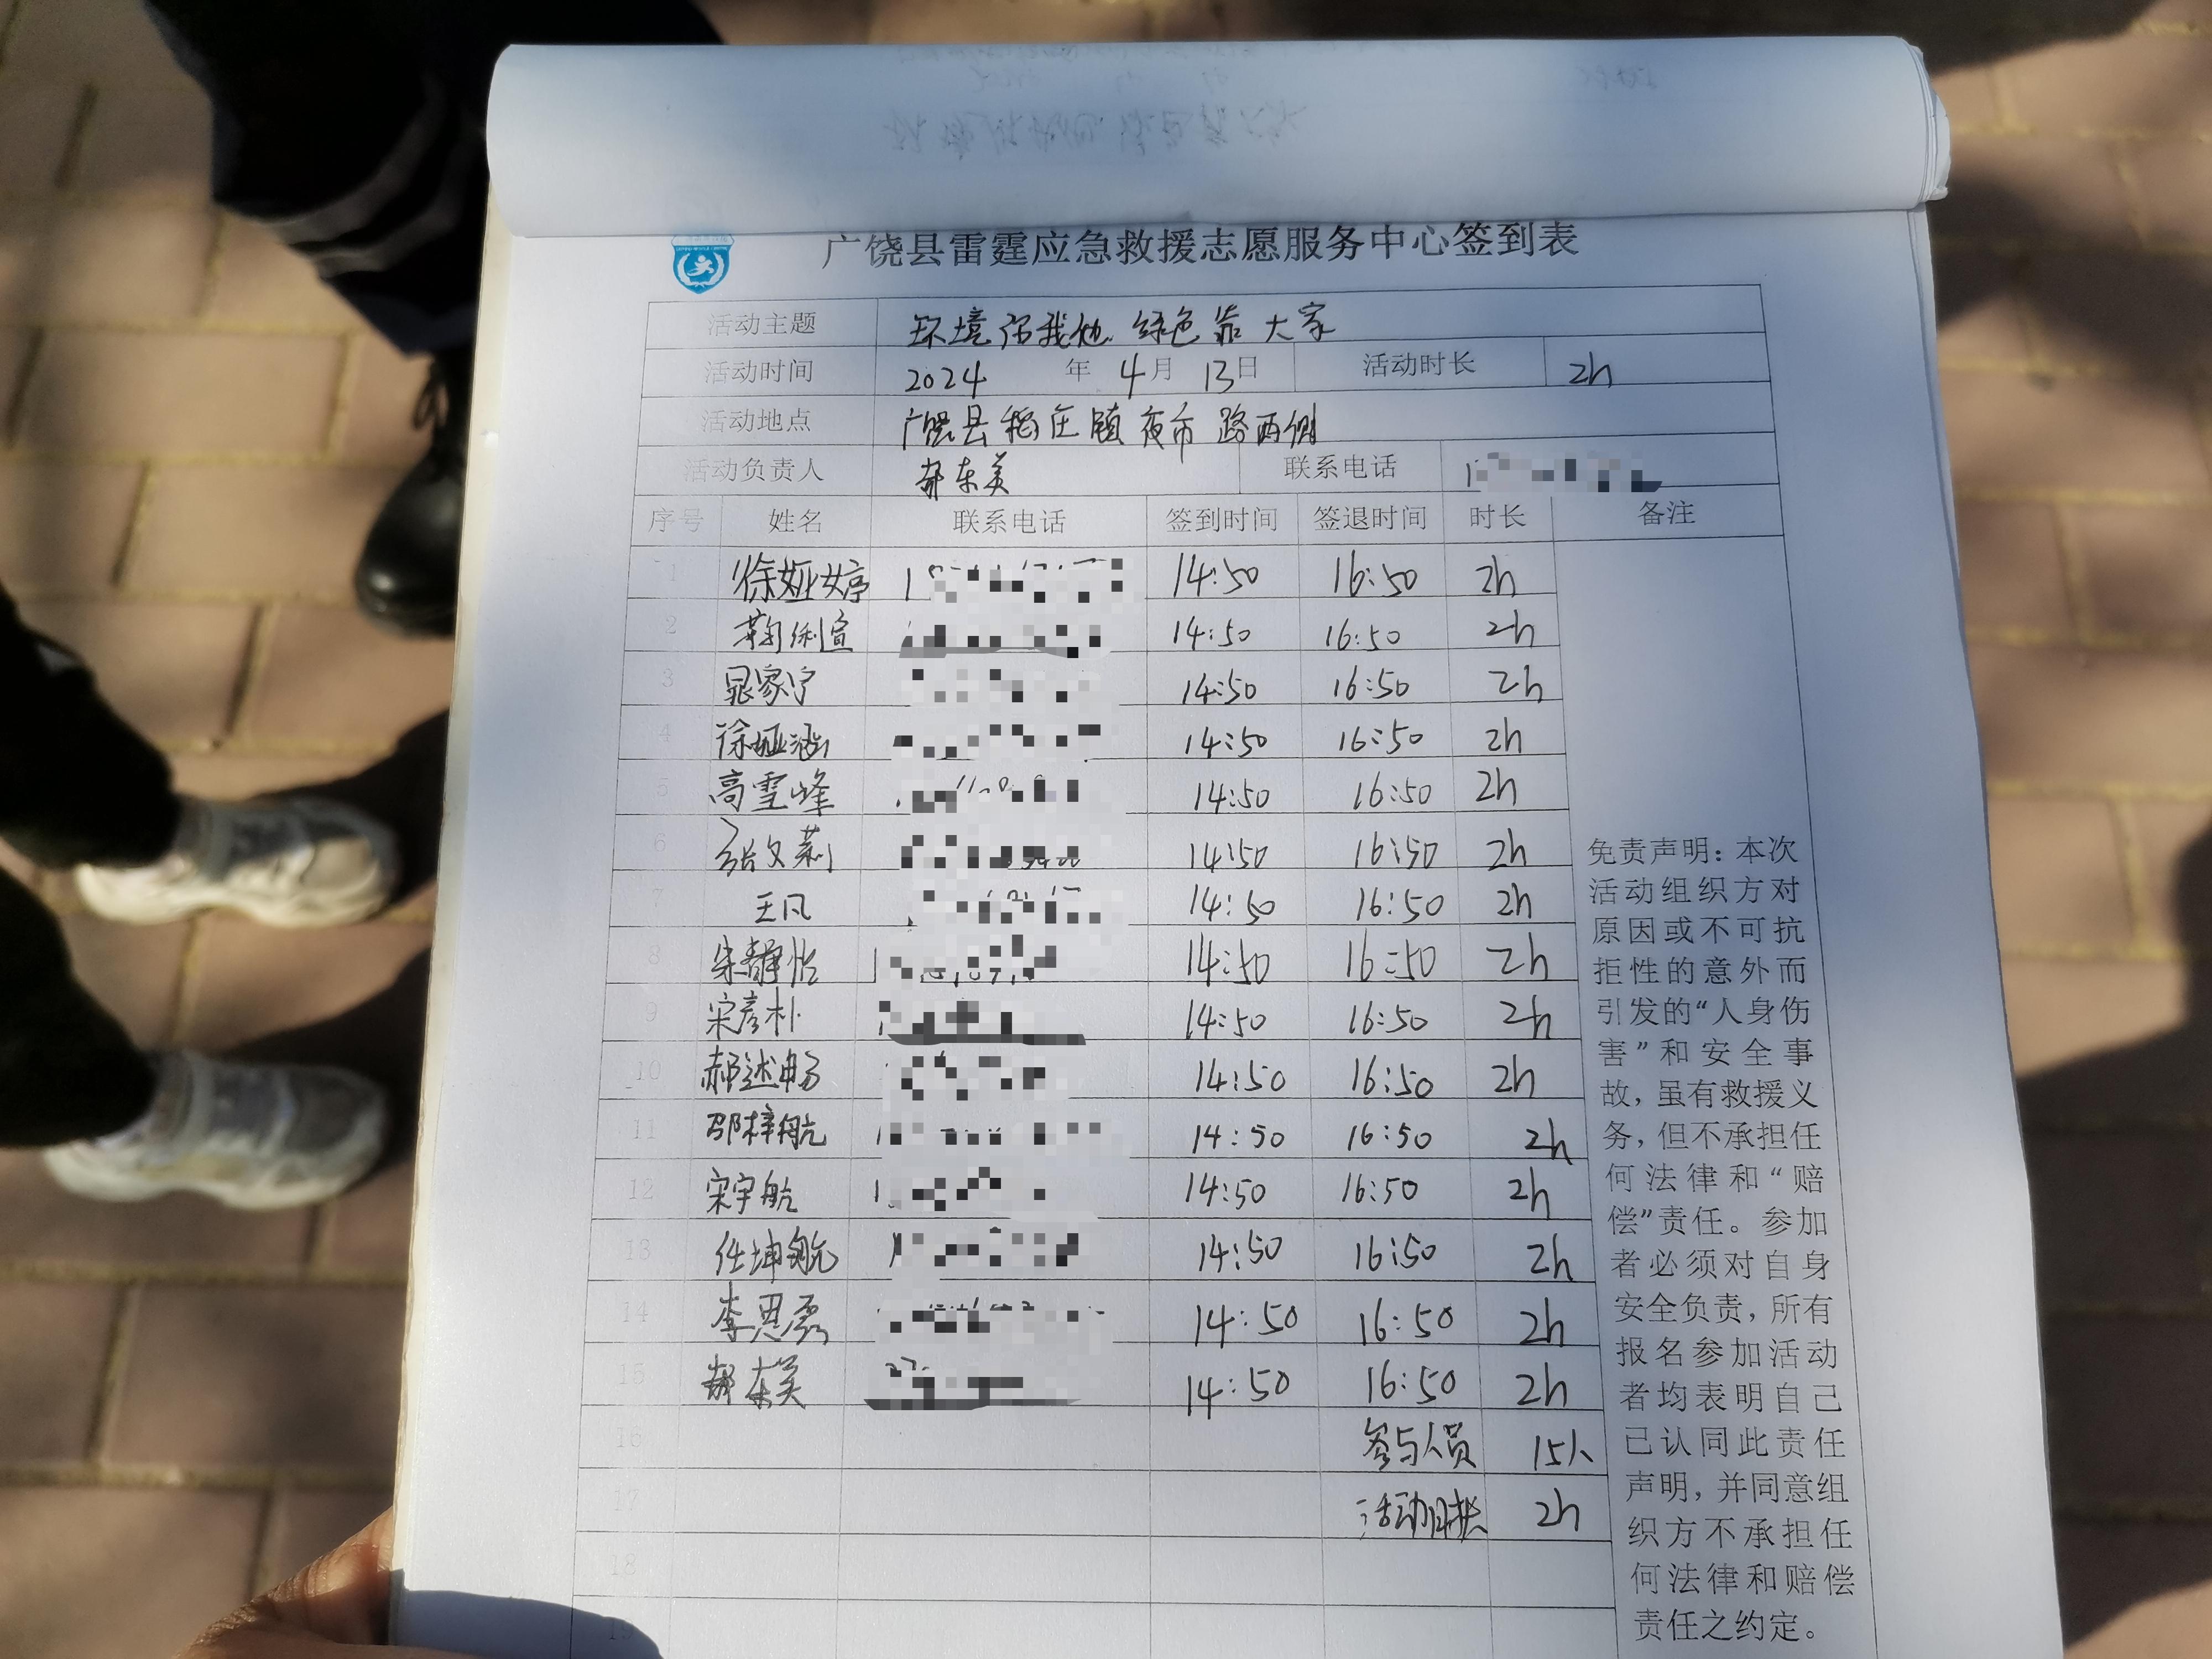 广饶县雷霆应急救援志愿服务中心签到表
活动主题 环境 你我他 绿色靠大家
活动时间 2024 年 4月 13日 活动时长 2h
活动地点 广饶县稻庄镇夜市路西侧
活动负责人 郝东美 联系电话
序号 姓名 联系电话 签到时间 签退时间 时长 备注
1 徐娅婷 14:50 16:50 2h
2 14:50 16:50 2h
3 晁家宁 14:50 16:50 2h
4 徐娅涵 14:50 16:50 2h
5 高雪峰 14:50 16:50 2h
6 张文莉 14:50 16:50 2h
7 王凡 14:50 16:50 2h
8 宋静怡 14:50 16:50 2h
9 宋彦朴 14:50 16:50 2h
10 郝述畅 14:50 16:50 2h
11 邵梓航 14:50 16:50 2h
12 宋宇航 14:50 16:50 2h
13 任坤航 14:50 16:50 2h
14 李思磊 14:50 16:50 2h
15 郝东美 14:50 16:50 2h
16 参与人员 15人
17 活动时长 2h
18
19
免责声明：本次
活动组织方对
原因或不可抗
拒性的意外而
引发的“人身伤
害”和安全事
故，虽有救援义
务，但不承担任
何法律和“赔
偿”责任。参加
者必须对自身
安全负责，所有
报名参加活动
者均表明自己
已认同此责任
声明，并同意组
织方不承担任
何法律和赔偿
责任之约定。